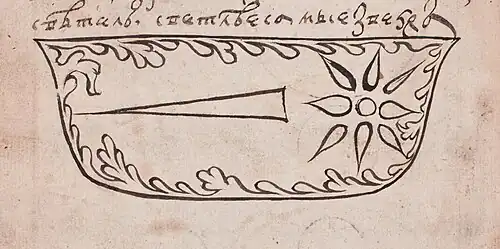 свѣтило, светлѣе самые звезды